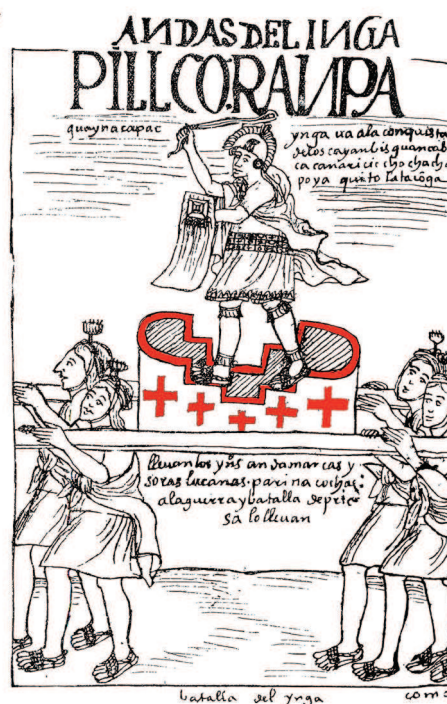 ANDAS DEL INGA
PILLCORANPA
guaynacapac
ynga ua a la conquista
de los cayanbis guancab
ca canari cicho chacha
poya quito lataconga
lleuan los ynos andamarcas y
soras lucanas parinacochas
a la guerra y batalla de prie
sa lo lleuan
batalla del ynga